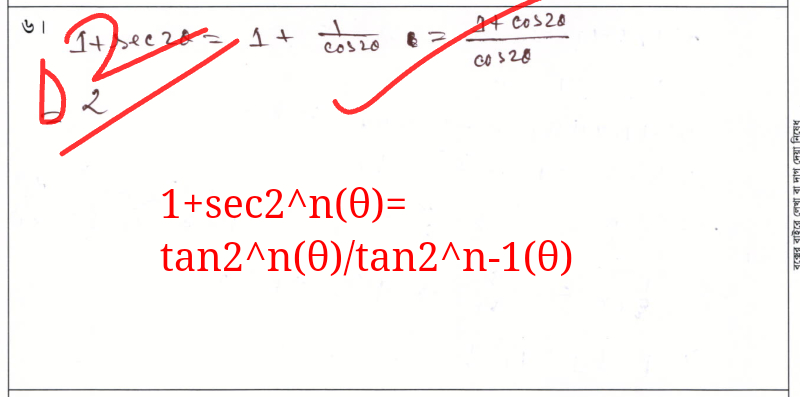 ৬। 1+sec2θ = 1 + 1/cos2θ = 1+cos2θ/cos2θ
= 2
1+sec2^n(θ)=
tan2^n(θ)/tan2^n-1(θ)
বক্সের বাইরে লেখা বা দাগ দেয়া নিষেধ